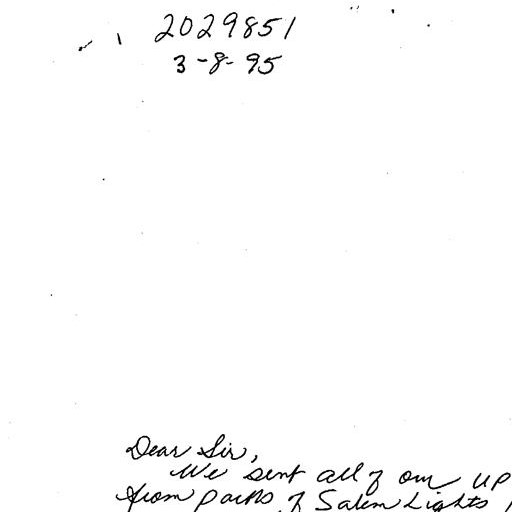 2029851
3-8-95
Dear Sir,
We sent all of our UP
from packs of Salem Lights